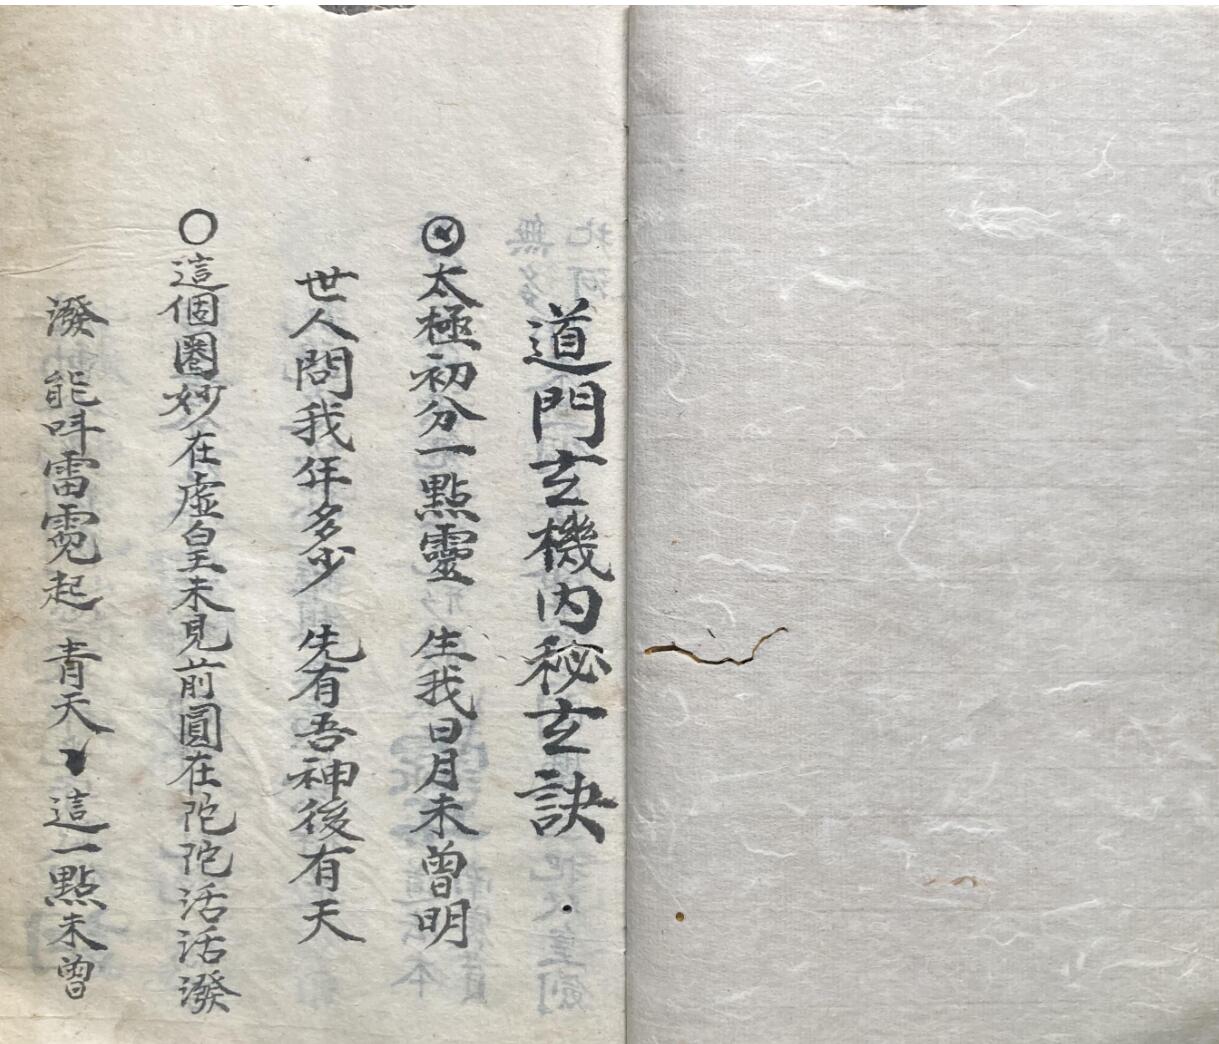 道門玄機內秘玄訣
太極初分一點靈 生我日月未曾明
世人問我年多少 先有吾神後有天
○這個圈妙在虛皇未見前圓在陀陀活活潑
潑 能呌雷霓起 青天 這一點未曾